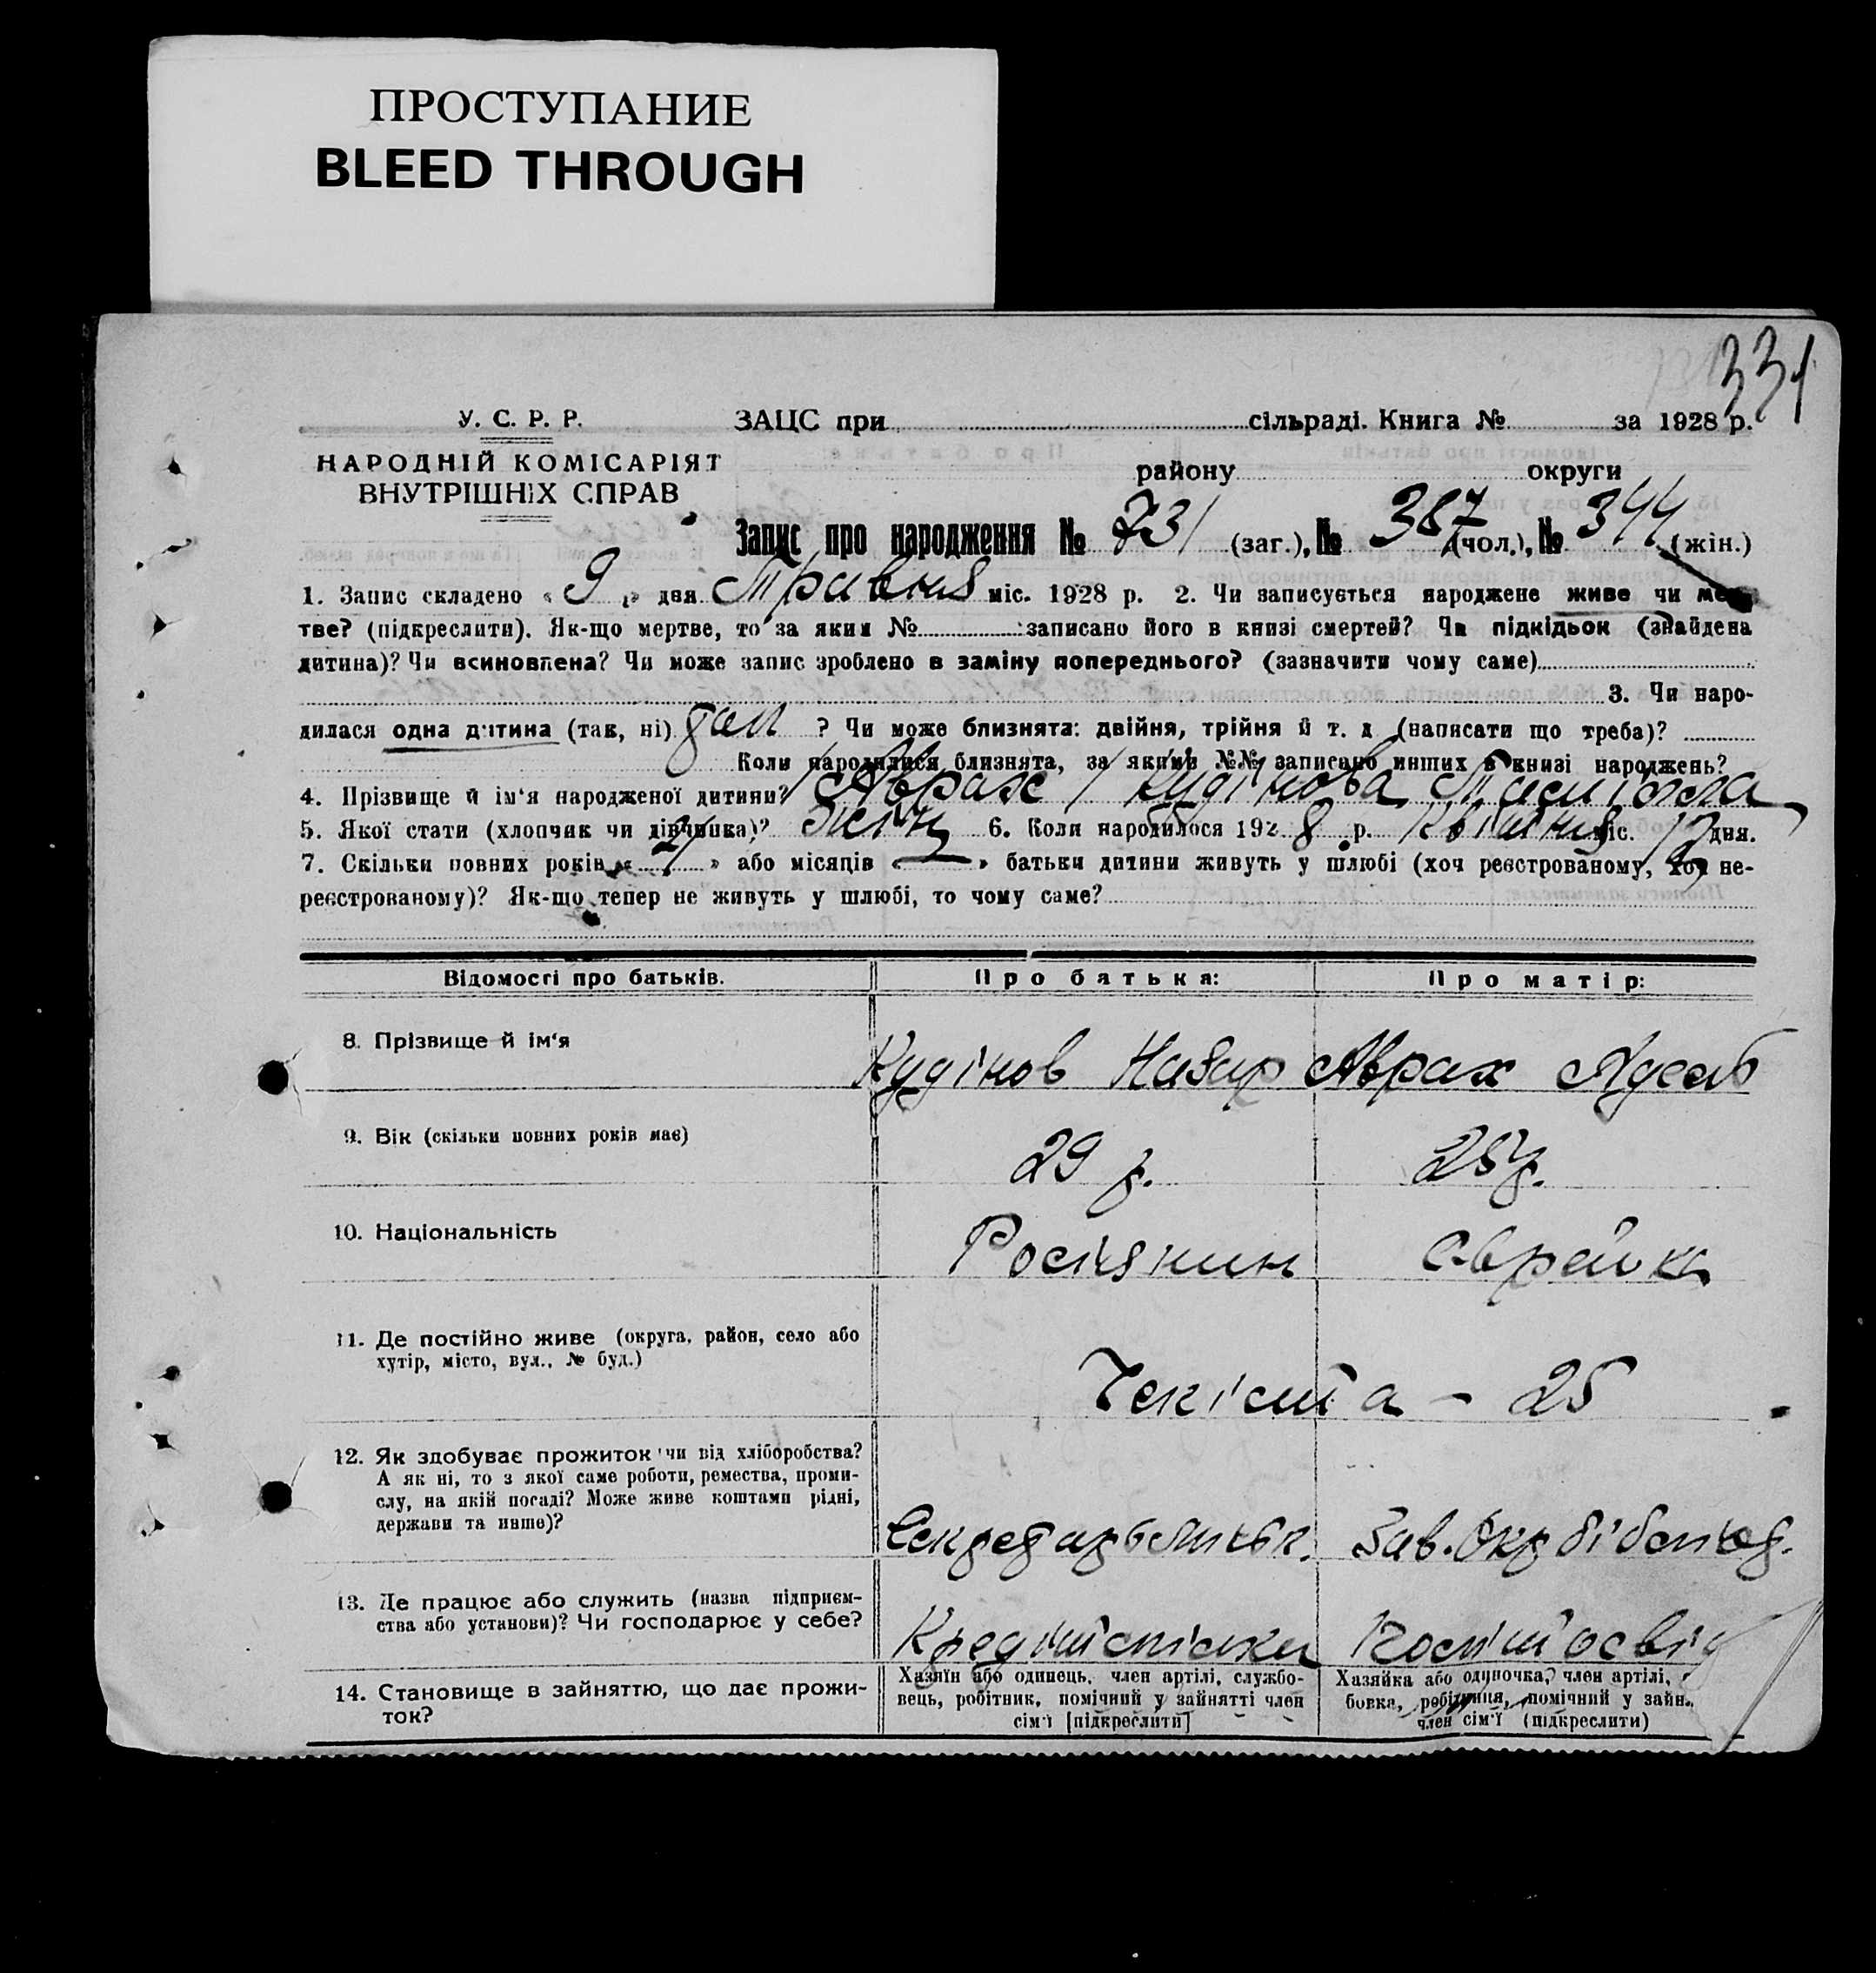 ПРОСТУПАНИЕ
BLEED THROUGH
331
У. С. Р. Р.
ЗАЦС при сільраді. Книга № за 1928 р.
НАРОДНІЙ КОМІСАРІЯТ
ВНУТРІШНІХ СПРАВ
району округи
Запис про народження № 731 (заг.), № 387 (чол.), № 344 (жін.)
1. Запис складено « 9 » дня Травня міс. 1928 р. 2. Чи записується народжене живе чи мер-
тве? (підкреслити). Як-що мертве, то за яким № записано його в книзі смертей? Чи підкідьок (знайдена
дитина)? Чи всиновлена? Чи може запис зроблено в заміну попереднього? (зазначити чому саме)
3. Чи наро-
дилася одна дитина (так, ні) ? Чи може близнята: двійня, трійня й т. д (написати що треба)?
Коли народилися близнята, за якими №№ записано инших в книзі народжень?
4. Прізвище й ім'я народженої дитини? /Аврах/ Кудінова
5. Якої стати (хлопчик чи дівчинка)? Жін 6. Коли народилося 1928 р. Квітня міс. 17 дня.
7. Скільки повних років « » або місяців « — » батьки дитини живуть у шлюбі (хоч реєстрованому, хоч не-
реєстрованому)? Як-що тепер не живуть у шлюбі, то чому саме?
Відомості про батьків. Про батька: Про матір:
8. Прізвище й ім'я Кудінов Назар Аврах
9. Вік (скільки повних років має) 29 р. 28 р.
10. Національність Росіянин Єврейка
11. Де постійно живе (округа, район, село або
хутір, місто, вул., № буд.)
Чекіста - 25
12. Як здобуває прожиток чи від хліборобства?
А як ні, то з якої саме роботи, ремества, проми-
слу, на якій посаді? Може живе коштами рідні,
держави та инше)?
Зав. Окр
13. Де працює або служить (назва підприєм-
ства або установи)? Чи господарює у себе?
Кредитспілки Політосвіт
14. Становище в зайняттю, що дає прожи-
ток?
Хазяїн або одинець, член артілі, службо-
вець, робітник, помічний у зайнятті член
сім'ї [підкреслити]
Хазяйка або одиночка, член артілі,
бовка, робітниця, помічний у зайн.
член сім'ї (підкреслити)